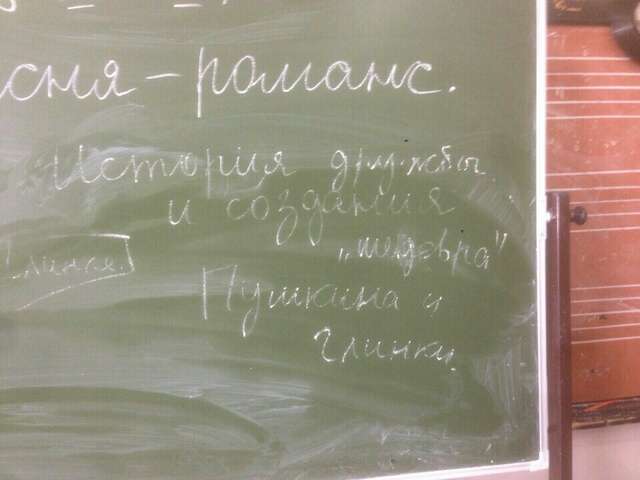 сня – романс.
История дружбы
и создания
„шедевра"
Глинка.
Пушкина и
Глинки